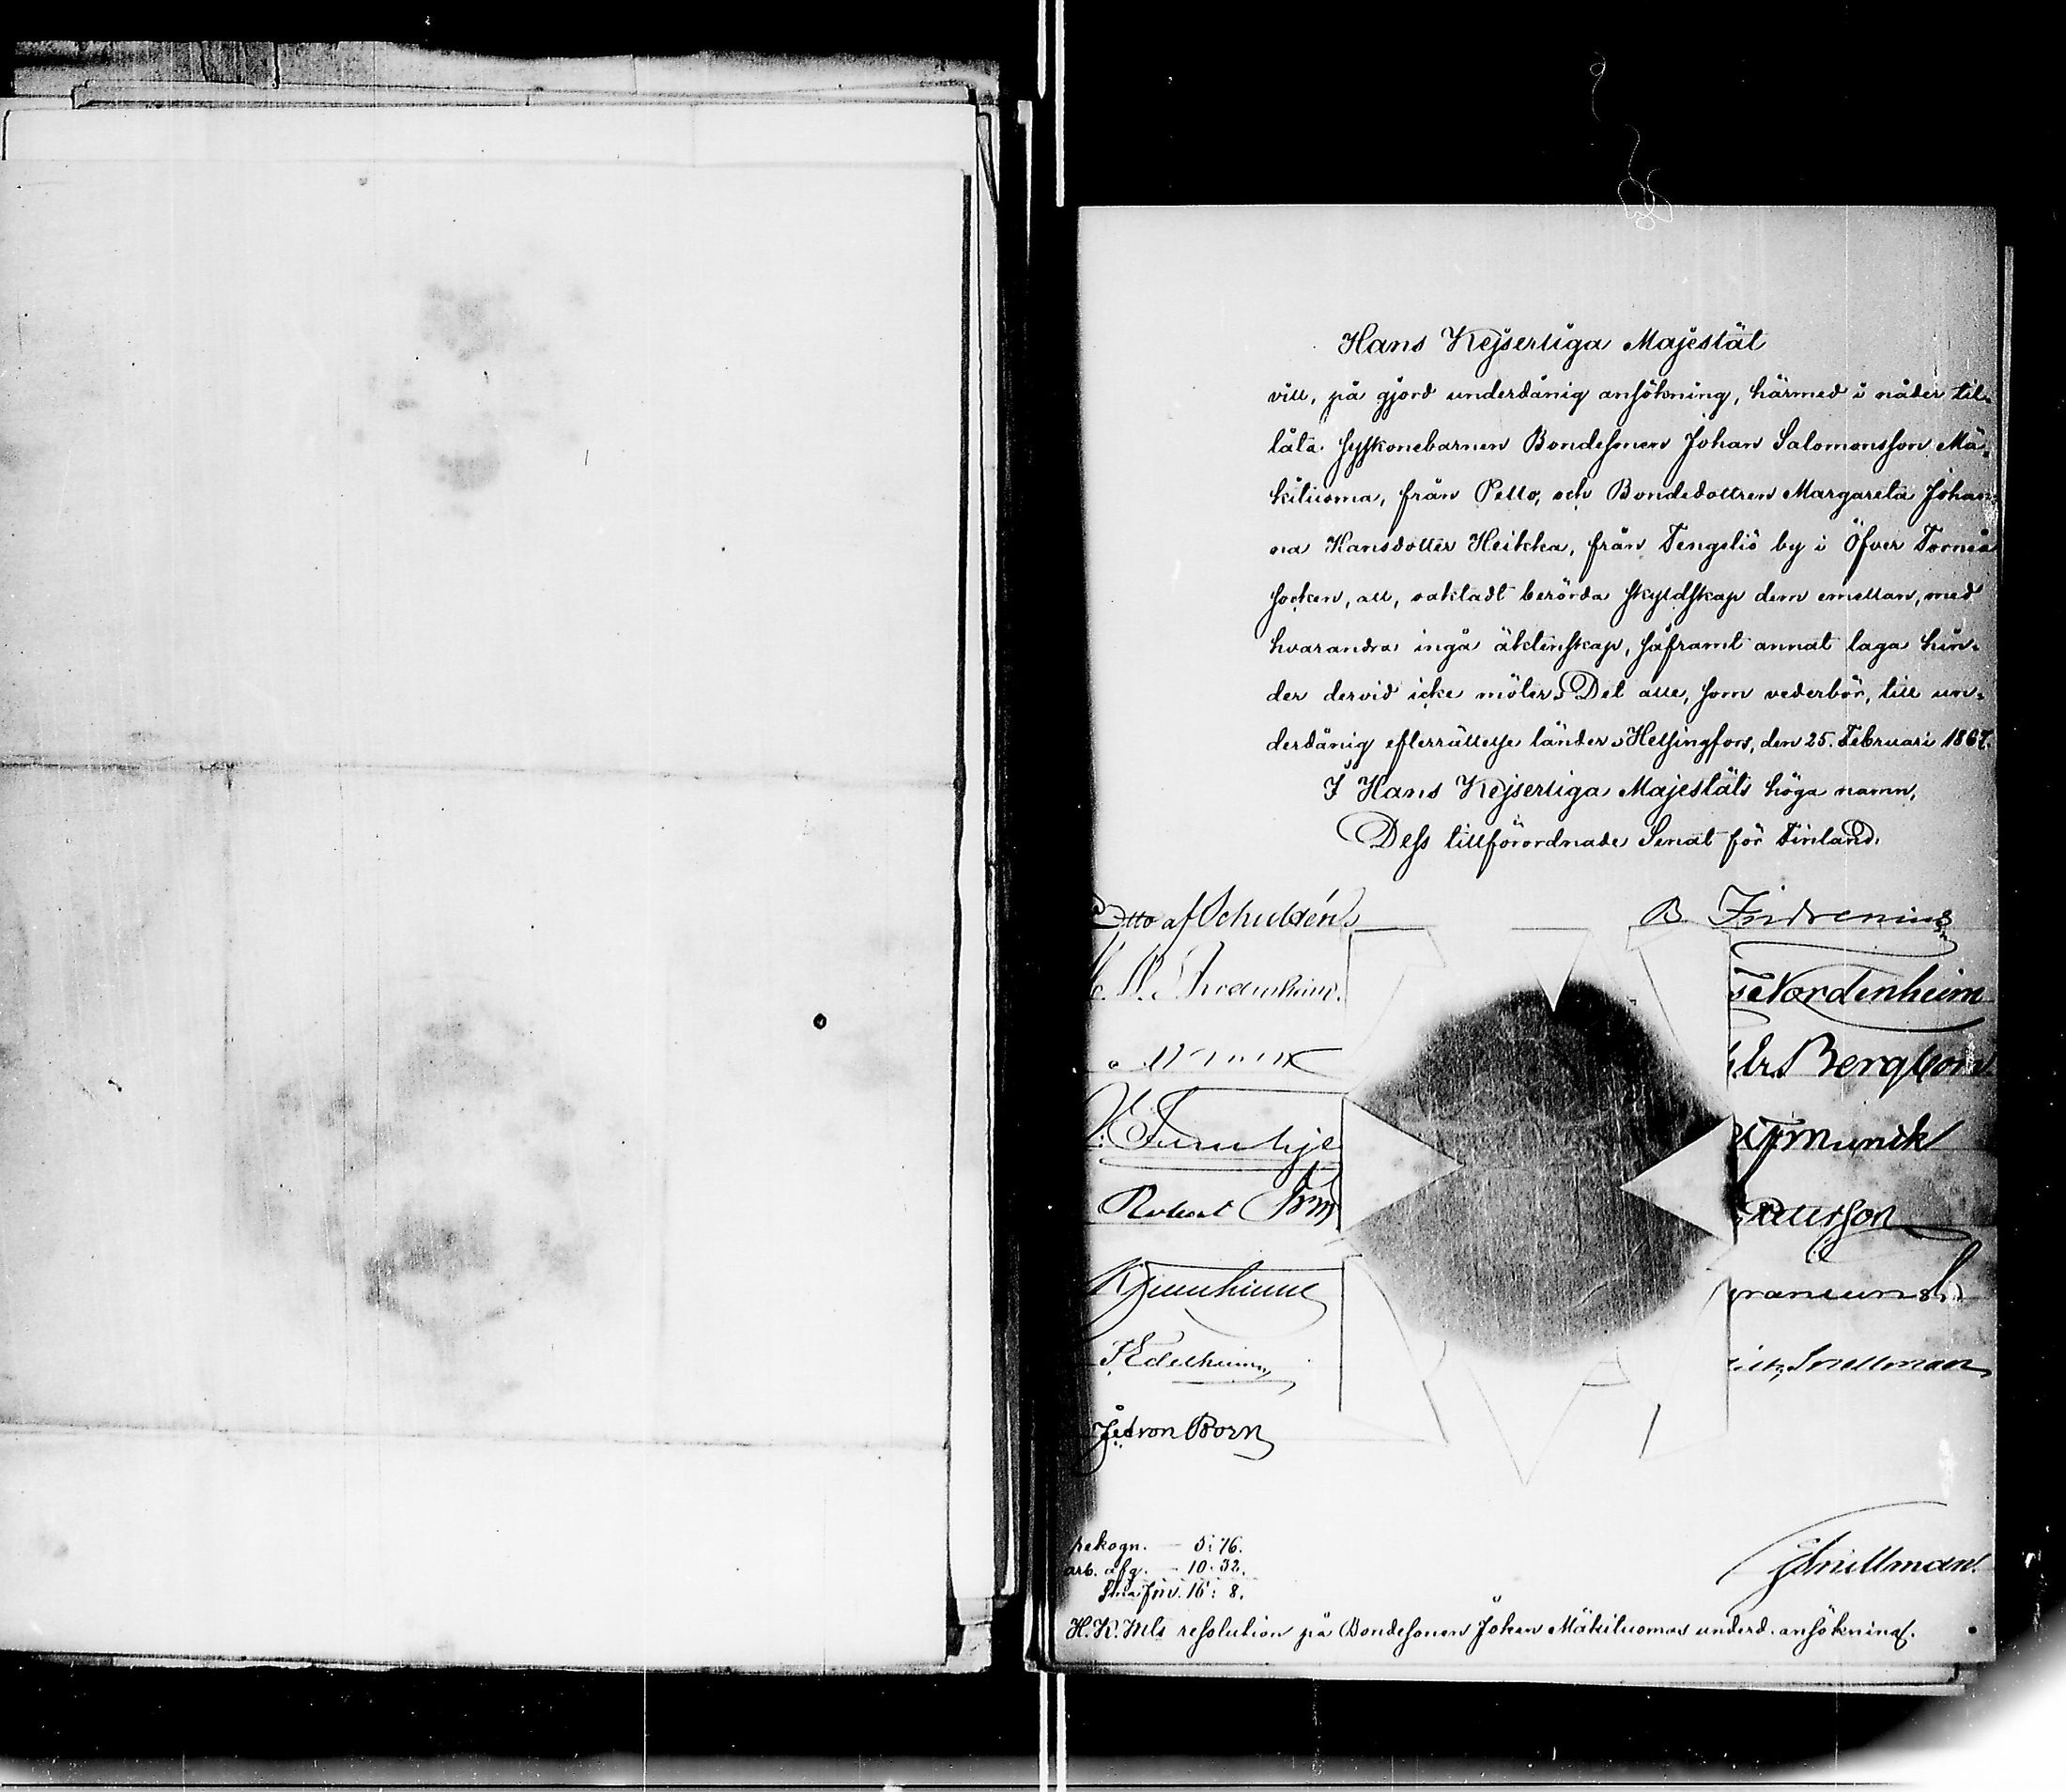 Hans Kejserliga Majestät
vill, på gjord underdånig ansökning, härmed i nåder til-
låta syskonebarnen Bondesonen Johan Salomonsson Mä-
kiluoma, från Pello, och Bondedottren Margareta Johan-
na Hansdotter Heikka, från Tengeliö by i Öfver Torneå
socken, att, oaktadt berörda skyldskap dem emellan, med
hvarandra ingå äktenskap, såframt annat laga hin-
der dervid icke möter. Det alle, som vederbör, till un-
derdånig efterrättelse länder. Helsingfors, den 25. Februari 1867.
I Hans Kejserliga Majestäts höga namn,
Dess tillförordnade Senat för Finland.
Otto af Schultén
B Indrenius
Nordenheim
Bergbom
Munck
V. Furuhje
Robert
Edelheim
Snellman
von Born
Rekogn. — 5: 76.
arb. afg. — 10: 32.
S:ma Fmk. 16: 8.
Snellman.
H. K. M:ts resolution på Bondesonen Johan Mäkiluomas underd. ansökning.